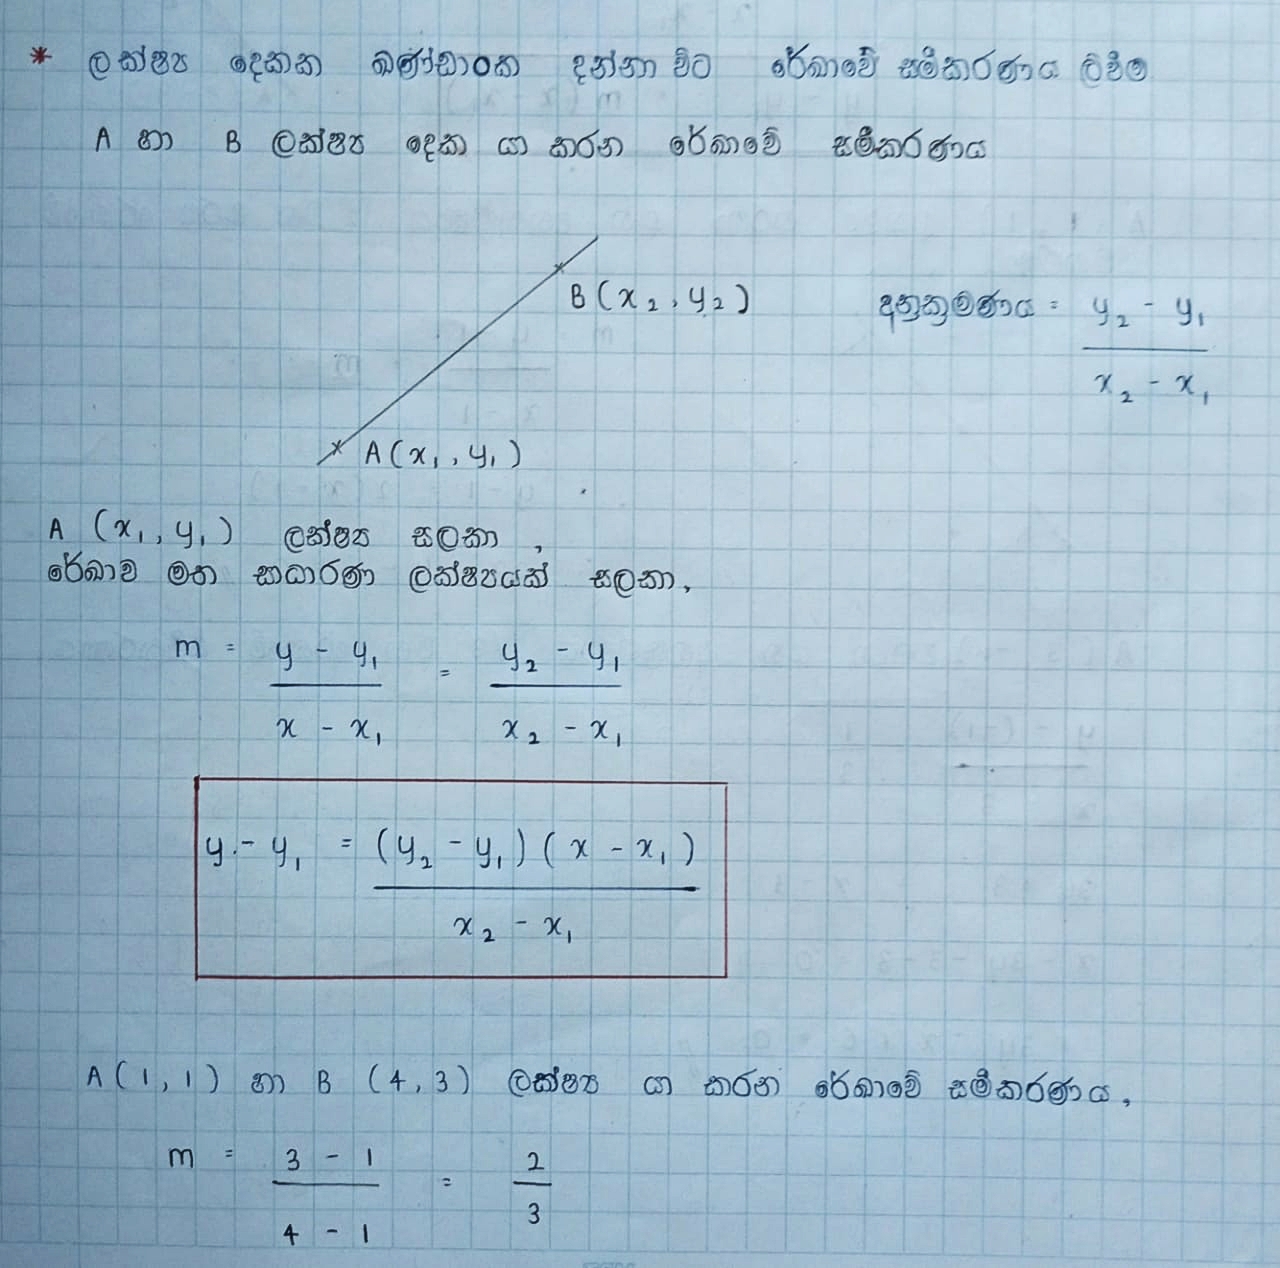 * ලක්ෂ්‍ය දෙකක ඛණ්ඩාංක දන්නා විට රේඛාවේ සමීකරණය ලිවීම
A හා B ලක්ෂ්‍ය දෙක යා කරන රේඛාවේ සමීකරණය
B (x₂, y₂) අනුක්‍රමණය = y₂ - y₁
x₂ - x₁
A (x₁, y₁)
A (x₁, y₁) ලක්ෂ්‍ය සලකා,
රේඛාව මත සාධාරණ ලක්ෂ්‍යයක් සලකා,
m = y - y₁ = y₂ - y₁
x - x₁ x₂ - x₁
y - y₁ = (y₂ - y₁) (x - x₁)
x₂ - x₁
A (1, 1) හා B (4, 3) ලක්ෂ්‍ය යා කරන රේඛාවේ සමීකරණය,
m = 3 - 1 = 2
4 - 1 3